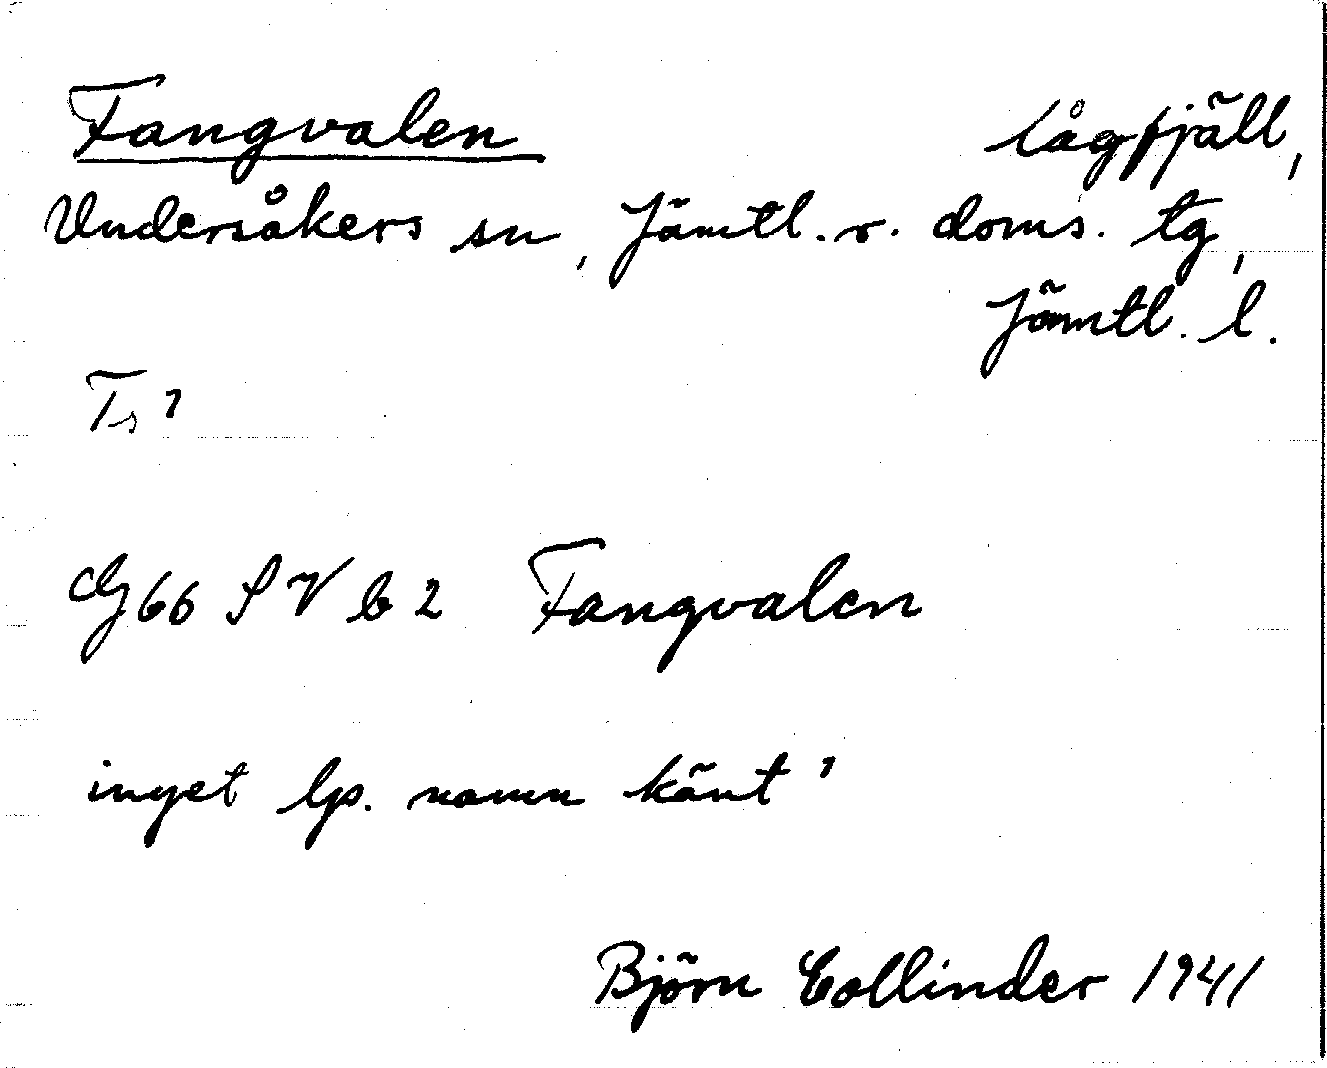 Fangvalen lågfjäll,
Undersåkers sn, Jämtl. v. doms. tg,
Jämtl. l.
Ts?
Gg 66 S V b 2 Fangvalen
inget lp. namn känt?
Björn Collinder 1941